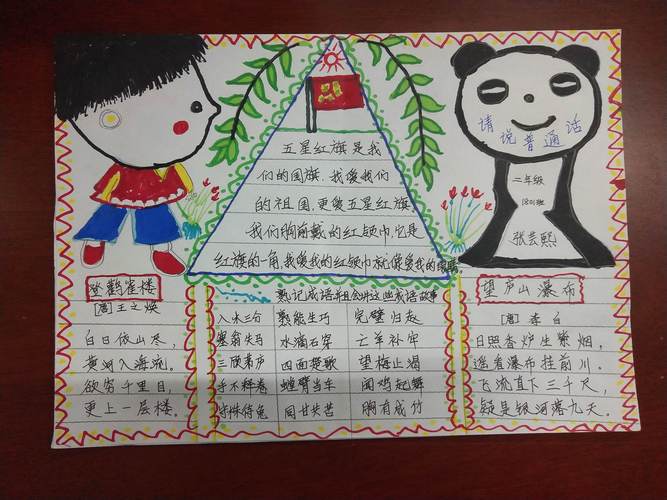 请说普通话
二年级
张芸熙
五星红旗是我
们的国旗，我爱我们
的祖国，更爱五星红旗。
我们胸前戴的红领巾，它是
红旗的一角，我爱我的红领巾就像爱我的眼睛
登鹳雀楼
[唐]王之焕
白日依山尽，
黄河入海流。
欲穷千里目，
更上一层楼。
熟记成语并且会讲这些成语故事
入木三分 熟能生巧 完璧归赵
塞翁失马 水滴石穿 亡羊补牢
三顾茅庐 四面楚歌 望梅止渴
手不释卷 螳臂当车 闻鸡起舞
守株待兔 同甘共苦 胸有成竹
望庐山瀑布
[唐]李白
日照香炉生紫烟，
遥看瀑布挂前川。
飞流直下三千尺，
疑是银河落九天。